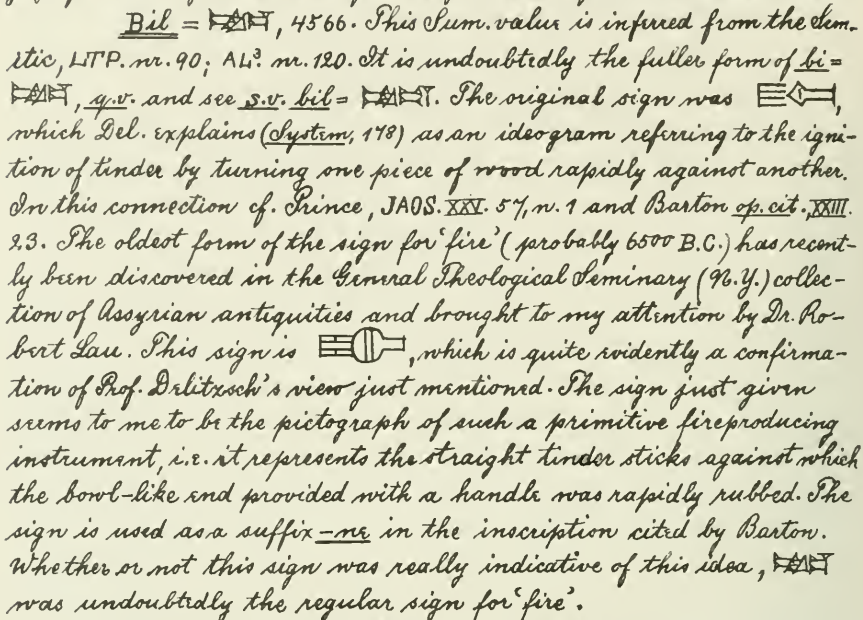 Bil = 𒉈, 4566. This Sum. value is inferred from the Sem-
itic, LTP. nr. 90; AL³. nr. 120. It is undoubtedly the fuller form of bi =
𒉈, q.v. and see s.v. bil = 𒉈. The original sign was ,
which Del. explains (System, 178) as an ideogram referring to the igni-
tion of tinder by turning one piece of wood rapidly against another.
In this connection cf. Prince, JAOS. XXV. 57, n. 1 and Barton op. cit., XXIII.
23. The oldest form of the sign for 'fire' (probably 6500 B.C.) has recent-
ly been discovered in the General Theological Seminary (N.Y.) collec-
tion of Assyrian antiquities and brought to my attention by Dr. Ro-
bert Lau. This sign is , which is quite evidently a confirma-
tion of Prof. Delitzsch's view just mentioned. The sign just given
seems to me to be the pictograph of such a primitive fireproducing
instrument, i.e. it represents the straight tinder sticks against which
the bowl-like end provided with a handle was rapidly rubbed. The
sign is used as a suffix -ne in the inscription cited by Barton.
Whether or not this sign was really indicative of this idea, 𒉈
was undoubtedly the regular sign for 'fire'.